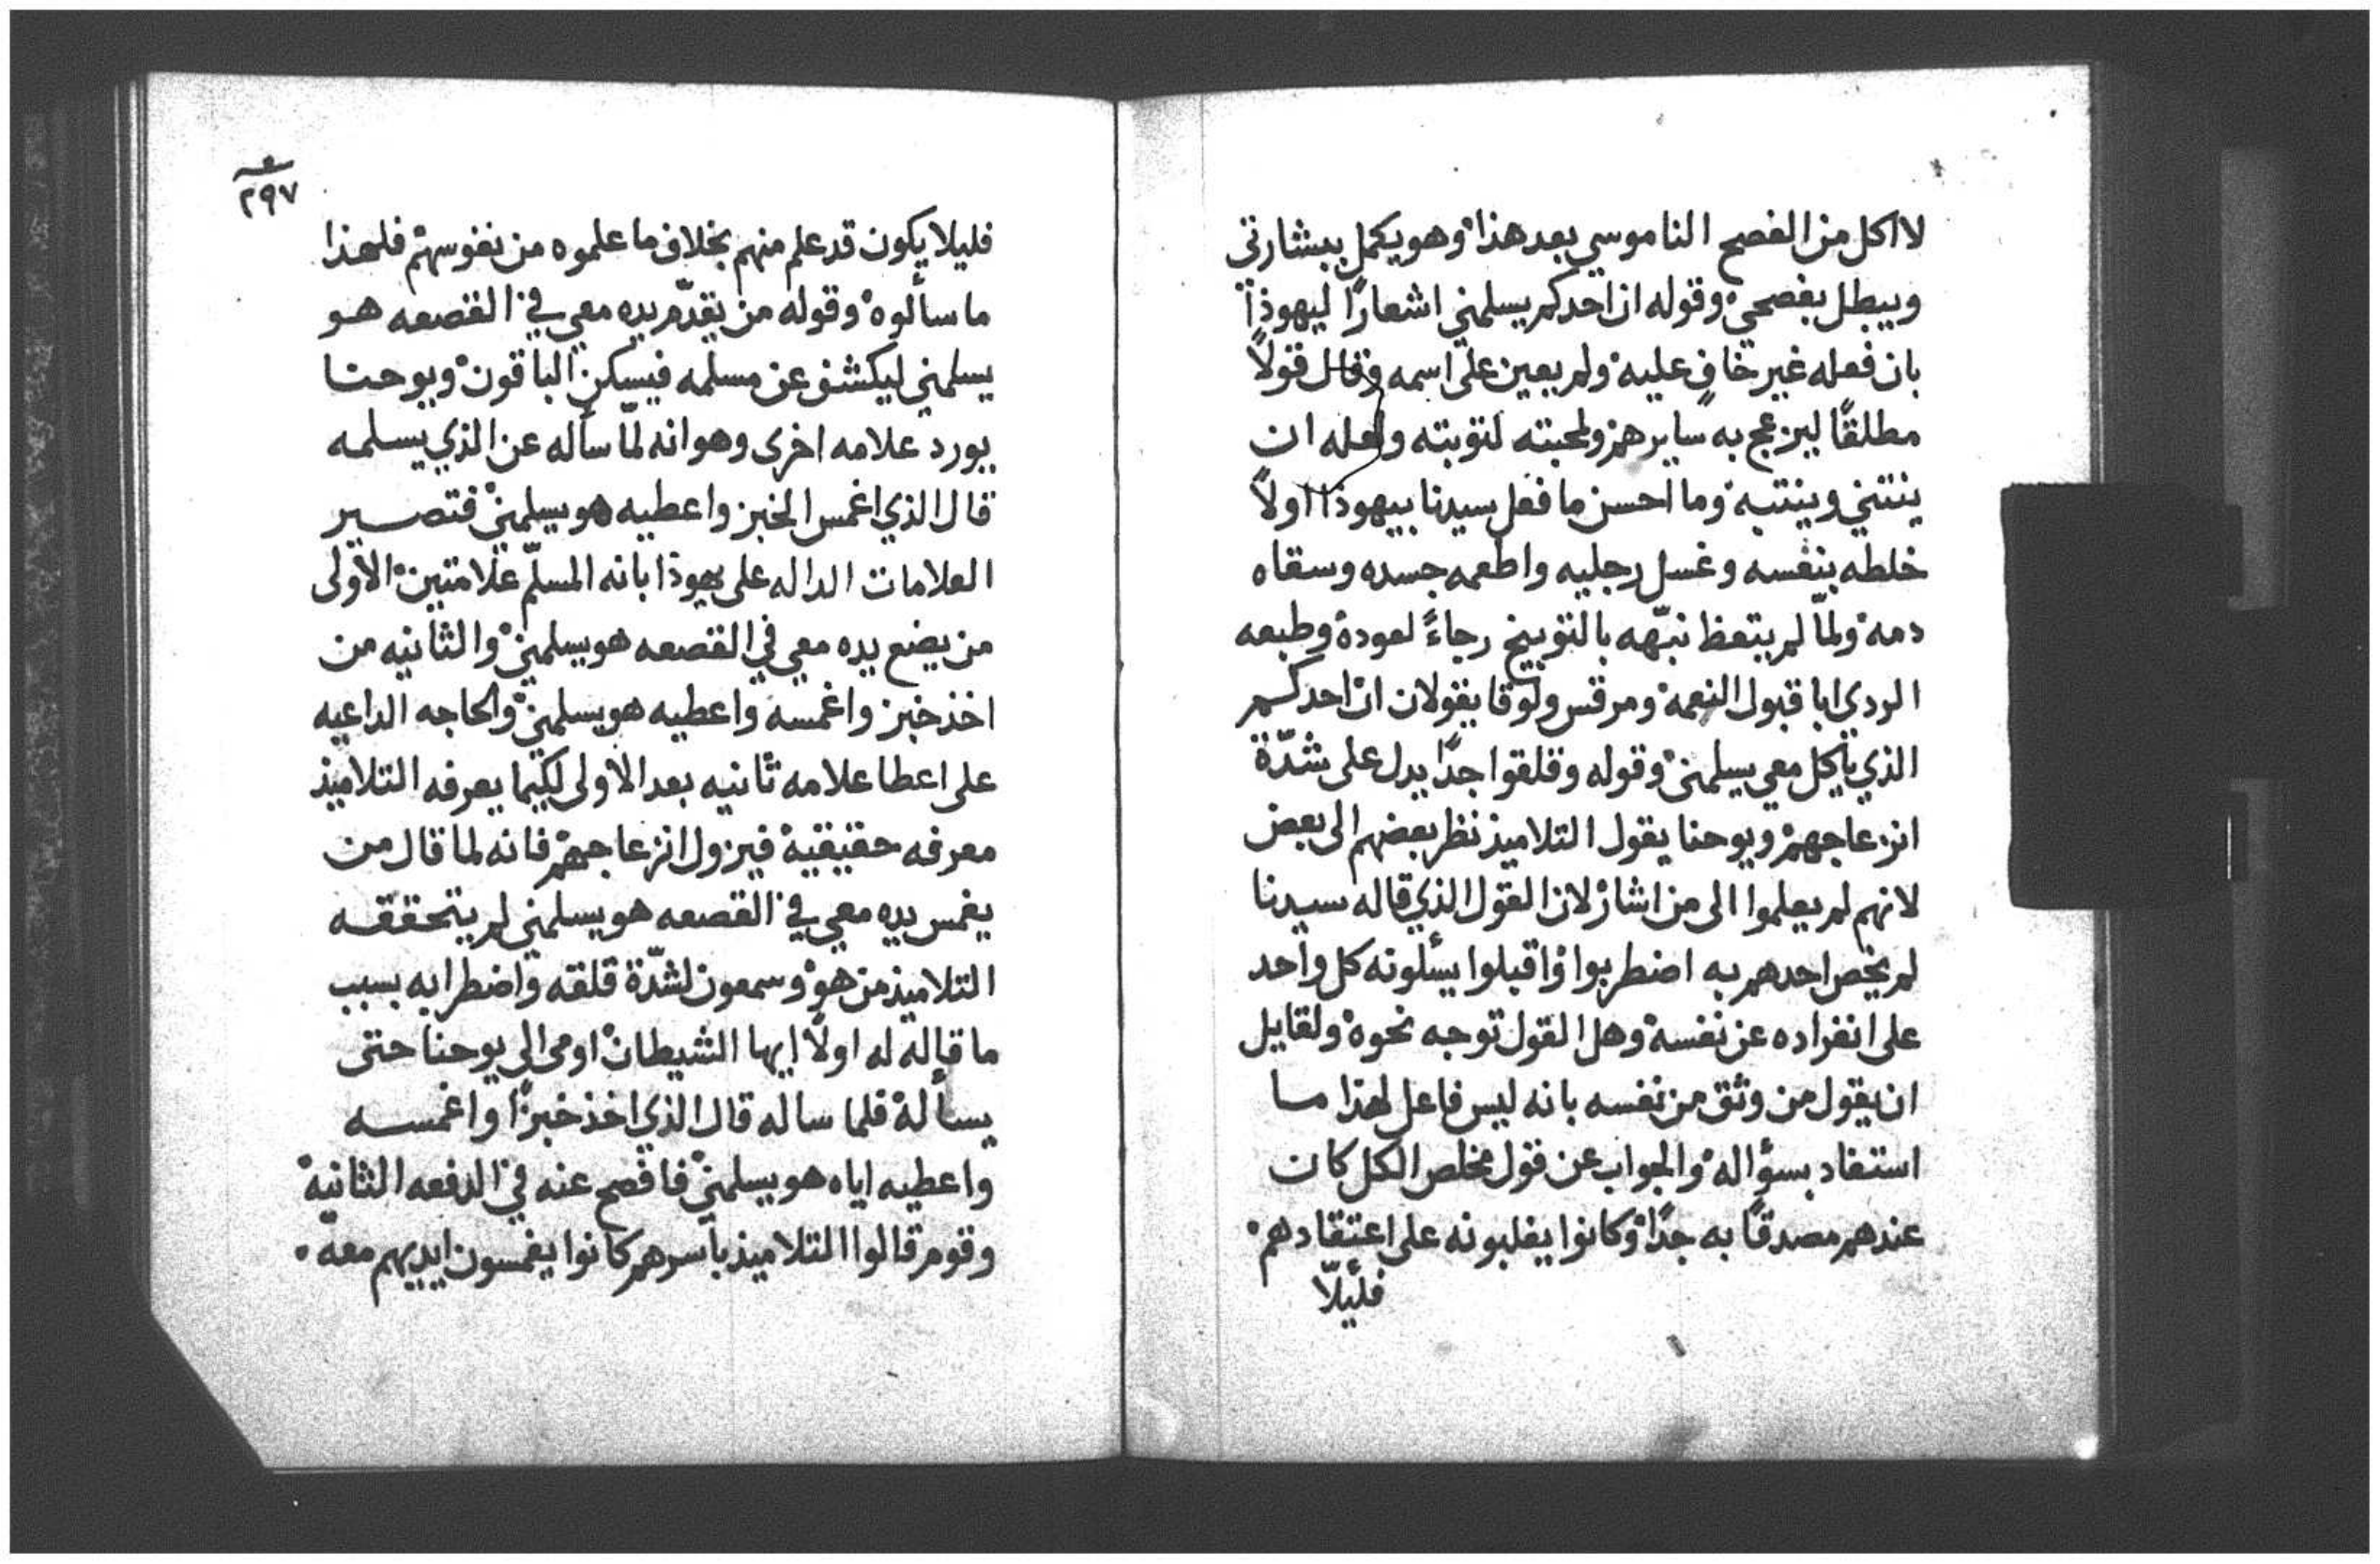 لا اكل من الفصح الناموسي بعد هذا وهو يكمل ببشارتي
ويبطل بفصحي وقوله ان احدكم يسلمني اشعارًا ليهوذا
بان فعله غير خافٍ عليه ولم يعين على اسمه وقال قولاً
مطلقًا لينزعج به سايرهم ولمحبته لتوبته ولعله ان
ينثني وينتبه وما احسن ما فعل سيدنا بيهوذا اولاً
خلطه بنفسه وغسل رجليه واطعمه جسده وسقاه
دمه ولمّا لم يتعظ نبّهه بالتوبيخ رجاءً لعوده وطبعه
الردي ابا قبول النعمه ومرقس ولوقا يقولان ان احدكم
الذي ياكل معي يسلمني وقوله وقلقوا جدًا يدل على شدّة
انزعاجهم ويوحنا يقول التلاميذ نظر بعضهم الى بعض
لانهم لم يعلموا الى من اشار لان القول الذي قاله سيدنا
لم يخص احدهم به اضطربوا واقبلوا يسئلونه كل واحد
على انفراده عن نفسه وهل القول توجه نحوه ولقايل
ان يقول من وثق من نفسه بانه ليس فاعل لهذا ما
استفاد بسؤاله والجواب عن قول مخلص الكل كان
عندهم مصدقًا به جدًا وكانوا يغلبونه على اعتقادهم
فليلّا
٢٩٧
فليلا يكون قد علم منهم بخلاف ما علموه من نفوسهم فلهذا
ما سألوه وقوله من يقدّم يده معي في القصعه هو
يسلمني ليكشف عن مسلمه فيسكن الباقون ويوحنا
يورد علامه اخرى وهو انه لمّا سأله عن الذي يسلمه
قال الذي اغمس الخبز واعطيه هو يسلمني فتصير
العلامات الداله على يهوذا بانه المسلّم علامتين الاولى
من يضع يده معي في القصعه هو يسلمني والثانيه من
اخذ خبز واغمسه واعطيه هو يسلمني والحاجه الداعيه
على اعطا علامه ثانيه بعد الاولى لكيما يعرفه التلاميذ
معرفه حقيقيه فيزول انزعاجهم فانه لما قال من
يغمس يده معي في القصعه هو يسلمني لم يتحققه
التلاميذ من هو وسمعون لشدّة قلقه واضطرابه بسبب
ما قاله له اولاً ايها الشيطان اومى الى يوحنا حتى
يسأله فلما ساله قال الذي اخذ خبزًا واغمسه
واعطيه اياه هو يسلمني فافصح عنه في الدفعه الثانيه
وقوم قالوا التلاميذ بأسرهم كانوا يغمسون ايديهم معه